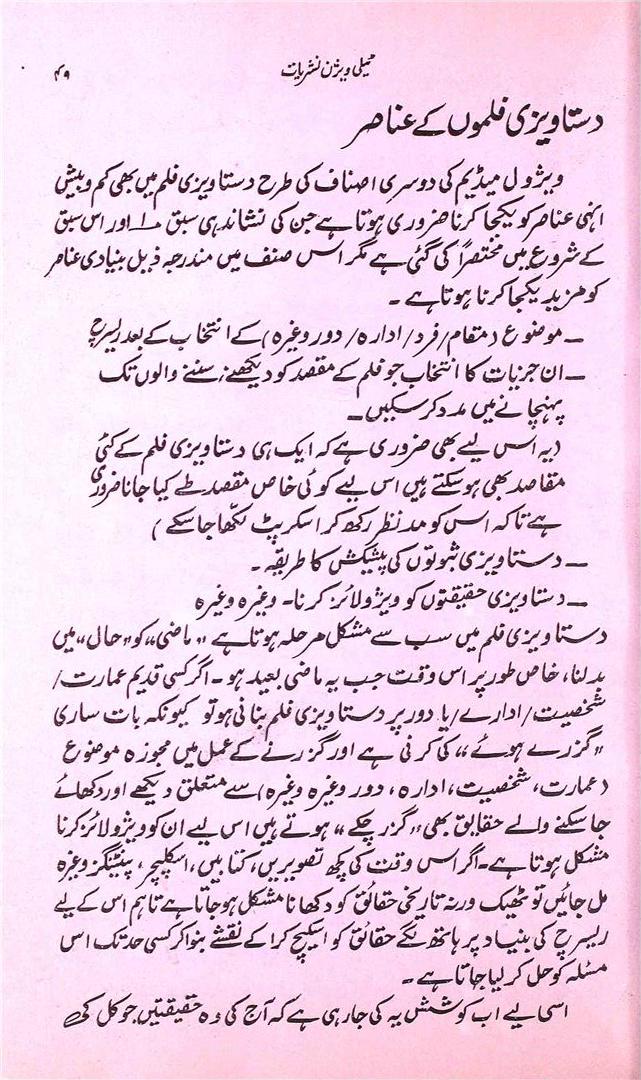 ٹیلی ویژن نشریات
۴۹
دستاویزی فلموں کے عناصر
ویژول میڈیم کی دوسری اصناف کی طرح دستاویزی فلم میں بھی کم و بیش
انہی عناصر کو یکجا کرنا ضروری ہوتا ہے جن کی نشاندہی سبق ۱۰ اور اس سبق
کے شروع میں مختصراً کی گئی ہے مگر اس صنف میں مندرجہ ذیل بنیادی عناصر
کو مزید یکجا کرنا ہوتا ہے۔
_ موضوع (مقام/ فرد/ ادارہ/ دور وغیرہ) کے انتخاب کے بعد ریسرچ
_ ان جزیات کا انتخاب جو فلم کے مقصد کو دیکھنے، سننے والوں تک
پہنچانے میں مدد کر سکیں۔
(یہ اس لیے بھی ضروری ہے کہ ایک ہی دستاویزی فلم کے کئی
مقاصد بھی ہو سکتے ہیں اس لیے کوئی خاص مقصد طے کیا جانا ضروری
ہے تاکہ اس کو مدنظر رکھ کر اسکرپٹ لکھا جا سکے)
_ دستاویزی ثبوتوں کی پیشکش کا طریقہ۔
_ دستاویزی حقیقتوں کو ویژولائز کرنا۔ وغیرہ وغیرہ
دستاویزی فلم میں سب سے مشکل مرحلہ ہوتا ہے "ماضی" کو "حال" میں
بدلنا، خاص طور پر اس وقت جب یہ ماضی بعید ہو۔ اگر کسی قدیم عمارت/
شخصیت/ ادارے/ یا دور پر دستاویزی فلم بنانی ہو تو کیونکہ بات ساری
"گزرے ہوئے" کی کرنی ہے اور گزرنے کے عمل میں مجوزہ موضوع
(عمارت، شخصیت، ادارہ، دور وغیرہ وغیرہ) سے متعلق دیکھے اور دکھائے
جا سکنے والے حقایق بھی "گزر چکے" ہوتے ہیں اس لیے ان کو ویژولائز کرنا
مشکل ہوتا ہے۔ اگر اس وقت کی کچھ تصویریں، کتابیں، اسکلپچر، پینٹنگز وغیرہ
مل جائیں تو ٹھیک ورنہ تاریخی حقائق کو دکھانا مشکل ہو جاتا ہے تاہم اس کے لیے
ریسرچ کی بنیاد پر ہاتھ لگے حقائق کو اسکیچ کرا کے نقشے بنوا کر کسی حد تک اس
مسئلہ کو حل کر لیا جاتا ہے۔
اسی لیے اب کوشش یہ کی جا رہی ہے کہ آج کی وہ حقیقتیں جو کل کی